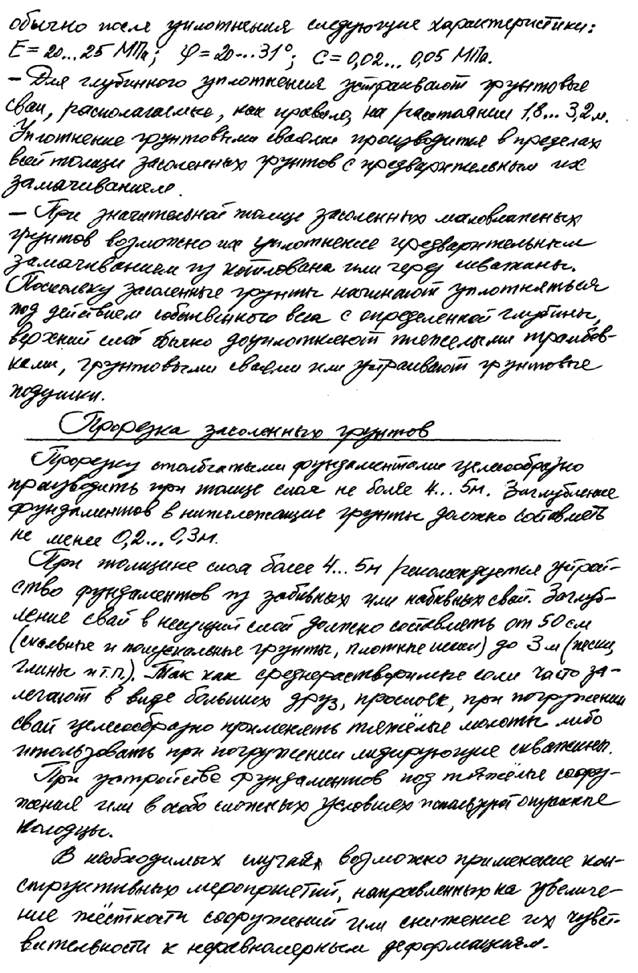 обычно после уплотнения следующие характеристики:
E = 20...25 МПа; φ = 20...31°; C = 0,02... 0,05 МПа.
– Для глубинного уплотнения устраивают грунтовые
сваи, располагаемые, как правило, на расстоянии 1,8... 3,2 м.
Уплотнение грунтовыми сваями производится в пределах
всей толщи засоленных грунтов с предварительным их
замачиванием.
– При значительной толще засоленных маловлажных
грунтов возможно их уплотнение предварительным
замачиванием из котлована или через скважины.
Поскольку засоленные грунты начинают уплотняться
под действием собственного веса с определенной глубины,
верхний слой обычно доуплотняют тяжелыми трамбов-
ками, грунтовыми сваями или устраивают грунтовые
подушки.
Прорезка засоленных грунтов
Прорезку столбчатыми фундаментами целесообразно
производить при толще слоя не более 4... 5м. Заглубление
фундаментов в нижележащие грунты должно составлять
не менее 0,2... 0,3м.
При толщине слоя более 4... 5м рекомендуется устрой-
ство фундаментов из забивных или набивных свай. Заглуб-
ление свай в несущий слой должно составлять от 50 см
(скальные и полускальные грунты, плотные пески) до 3 м (пески,
глины и т.п.). Так как среднерастворимые соли часто за-
легают в виде больших друз, прослоек, при погружении
свай целесообразно применять тяжёлые молоты либо
использовать при погружении лидирующие скважины.
При устройстве фундаментов под тяжёлые соору-
жения или в особо сложных условиях используют опускные
колодцы.
В необходимых случаях возможно применение кон-
структивных мероприятий, направленных на увеличе-
ние жёсткости сооружений или снижение их чувст-
вительности к неравномерным деформациям.